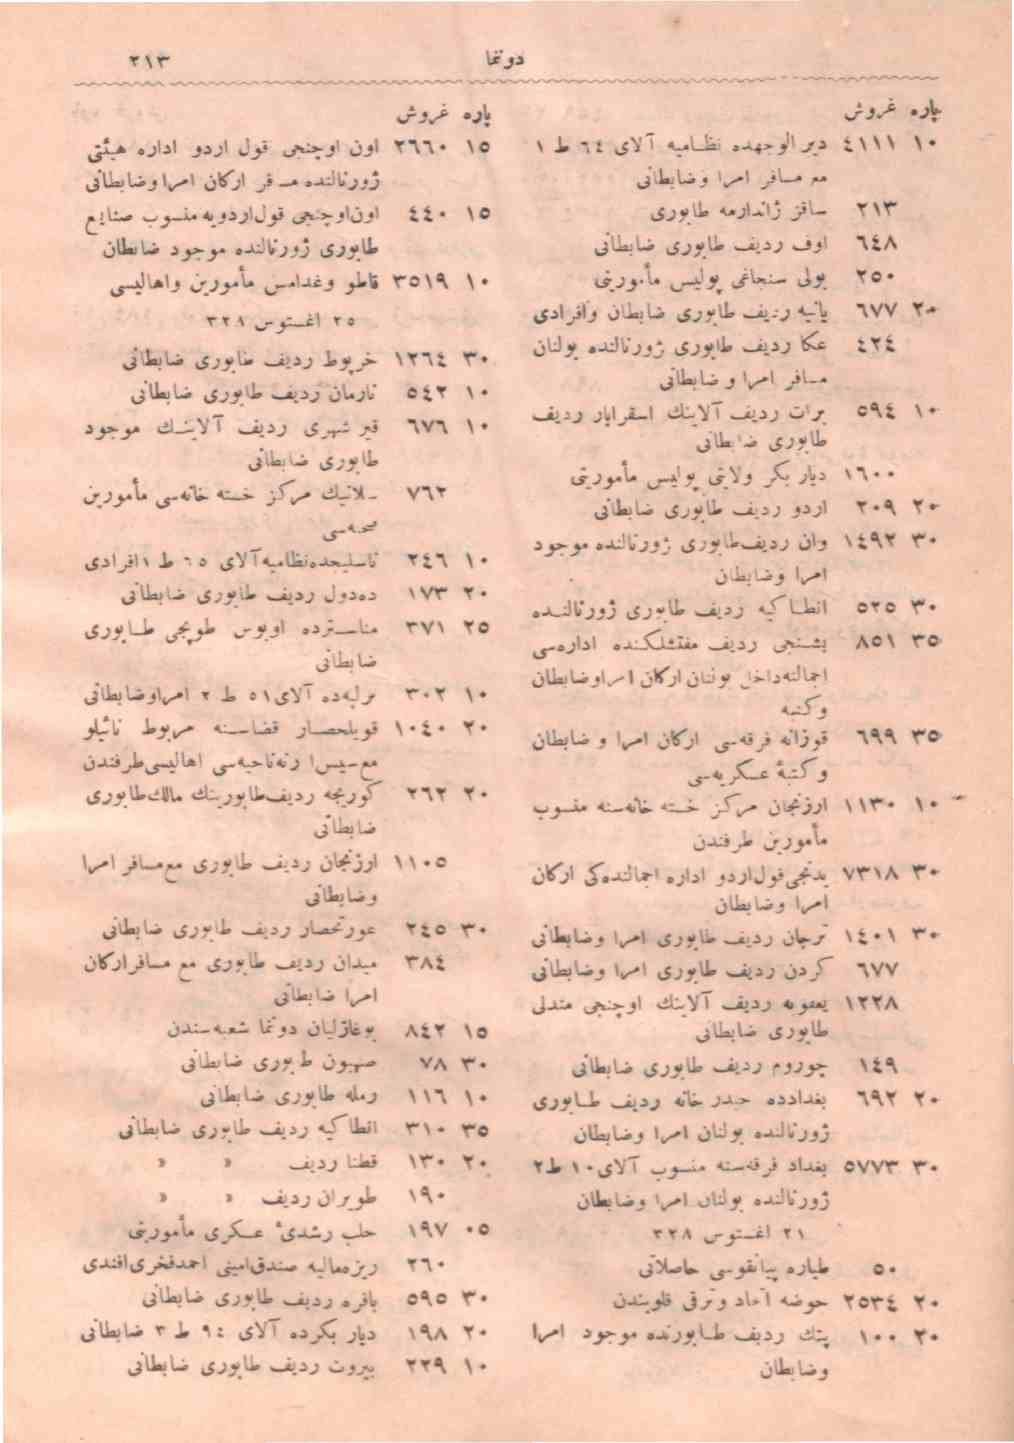 دونما ٢١٣
پاره غروش
١٠ ٤١١١ دير الوجهده نظاميه آلای ٦٤ ط ١
مع مسافر امرا وضابطانی
٢١٣ ساقز ژاندارمه طابوری
٦٤٨ اوف رديف طابوری ضابطانی
٢٥٠ بولی سنجاغی پوليس مأموريتی
٢٠ ٦٧٧ يانيه رديف طابوری ضابطان وافرادی
٤٢٤ عكا رديف طابوری ژورنالنده بولنان
مسافر امرا و ضابطانی
١٠ ٥٩٤ برات رديف آلاينك اسقراپار رديف
طابوری ضابطانی
١٦٠٠ ديار بكر ولايتی پوليس مأموريتی
٢٠ ٢٠٩ اردو رديف طابوری ضابطانی
٣٠ ١٤٩٢ وان رديف طابوری ژورنالنده موجود
امرا وضابطان
٣٠ ٥٢٥ انطاكيه رديف طابوری ژورنالنده
٣٥ ٨٥١ بشنجی رديف مفتشلكنده اداره‌سی
اجمالنه داخل بولنان اركان امراوضابطان
وكتبه
٣٥ ٦٩٩ قوزانه فرقه‌سی اركان امرا و ضابطان
وكتبهٔ عسكريه‌سی
١٠ ١١٣٠ ارزنجان مركز خسته خانه‌سنه منسوب
مأمورين طرفندن
٣٠ ٧٣١٨ يدنجی قول اردو اداره اجمالنده‌كی اركان
امرا وضابطان
٣٠ ١٤٠١ ترجان رديف طابوری امرا وضابطانی
٦٧٧ كردن رديف طابوری امرا وضابطانی
١٢٢٨ يعقوبه رديف آلاينك اوچنجی مندلی
طابوری ضابطانی
١٤٩ چوروم رديف طابوری ضابطانی
٢٠ ٦٩٢ بغدادده حيدر خانه رديف طابوری
ژورنالنده بولنان امرا وضابطان
٣٠ ٥٧٧٣ بغداد فرقه‌سنه منسوب آلای ١٠ ط ٢
ژورنالنده بولنان امرا وضابطان
٢١ اغستوس ٣٢٨
٥٠ طياره پيانقوسی حاصلاتی
٢٠ ٢٥٣٤ حوضه اتحاد وترقی قلوبندن
٢٠ ١٠٠ پتك رديف طابورنده موجود امرا
وضابطان
پاره غروش
١٥ ٢٦٦٠ اون اوچنجی قول اردو اداره هيئتی
ژورنالنده مسافر اركان امرا وضابطانی
١٥ ٤٤٠ اون‌اوچنجی قول‌اردويه منسوب صنايع
طابوری ژورنالنده موجود ضابطان
١٠ ٣٥١٩ قاطو وغدامس مأمورين واهاليسی
٢٥ اغستوس ٣٢٨
٣٠ ١٢٦٤ خرپوط رديف طابوری ضابطانی
١٠ ٥٤٢ نارمان رديف طابوری ضابطانی
١٠ ٦٧٦ قير شهری رديف آلاينك موجود
طابوری ضابطانی
٧٦٢ سلانيك مركز خسته خانه‌سی مأمورين
صحيه‌سی
١٠ ٢٤٦ تاسليجه‌ده نظاميه آلای ٦٥ ط ١ افرادی
٢٠ ١٧٣ ده‌دول رديف طابوری ضابطانی
٢٥ ٣٧١ مناسترده اوبوس طوپجی طابوری
ضابطانی
١٠ ٣٠٢ برليه‌ده آلای ٥١ ط ٢ امراوضابطانی
٢٠ ١٠٤٠ قويلحصار قضاسنه مربوط نائپلو
مع سيس‌ا رنه‌ناحيه‌سی اهاليسی طرفندن
٢٠ ٢٦٢ كوريجه رديف طابورينك مالك طابوری
ضابطانی
١١٠٥ ارزنجان رديف طابوری مع مسافر امرا
وضابطانی
٣٠ ٢٤٥ عورتحصار رديف طابوری ضابطانی
٣٨٤ ميدان رديف طابوری مع مسافر اركان
امرا ضابطانی
١٥ ٨٤٢ بوغازليان دونما شعبه‌سندن
٣٠ ٧٨ صهيون طابوری ضابطانی
١٠ ١١٦ رمله طابوری ضابطانی
٣٥ ٣١٠ انطاكيه رديف طابوری ضابطانی
٢٠ ١٣٠ قطنا رديف « «
١٩٠ طويران رديف « «
٠٥ ١٩٧ حلب رشديهٔ عسكری مأموريتی
٢٦٠ ريزه‌ماليه صندق‌امينی احمدفخری‌افندی
٣٠ ٥٩٥ بافره رديف طابوری ضابطانی
٢٠ ١٩٨ ديار بكرده آلای ٩٤ ط ٣ ضابطانی
١٠ ٢٢٩ بيروت رديف طابوری ضابطانی